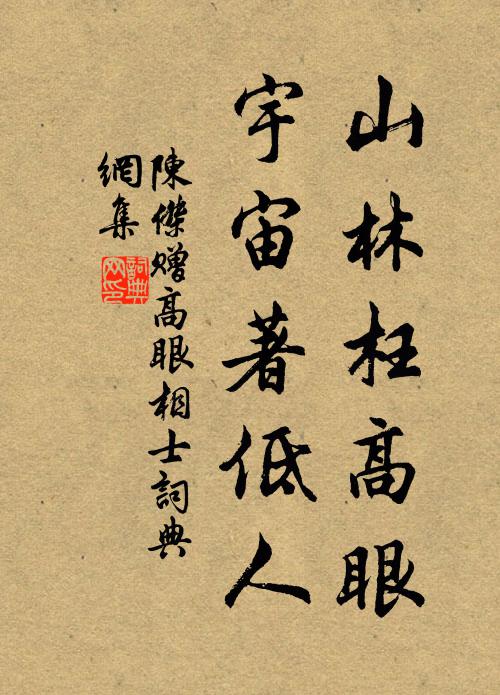 山林枉高眼
宇宙著低人
陳傑贈高眼相士詞典
網集
詞典
网印